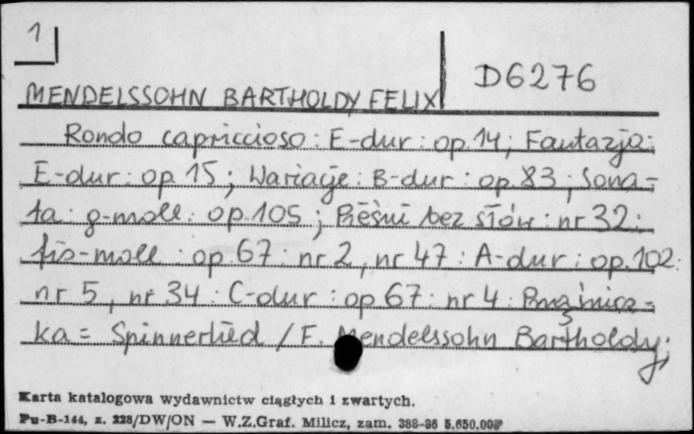 1
D6276
MENDELSSOHN BARTHOLDY FELIX
Rondo capriccioso : E-dur : op.14 ; Fantazja :
E-dur : op 15 ; Wariacje : B-dur : op.83 ; Sona-
ta : g-moll : op.105 ; Pieśni bez słów : nr 32 :
fis-moll : op.67 : nr 2, nr 47 : A-dur : op.102 :
nr 5, nr 34 : C-dur : op 67 : nr 4 :
ka = Spinnerlied / F. Mendelssohn Bartholdy ;
Karta katalogowa wydawnictw ciągłych i zwartych.
Pu-B-144, z. 228/DW/ON — W.Z.Graf. Milicz, zam. 388-86 5.650.000